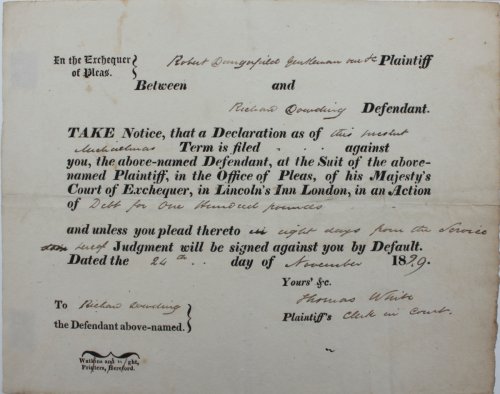 In the Exchequer of Pleas.
Robert Dangerfield Gentleman one &c Plaintiff
Between and
Richard Dowding Defendant.
TAKE Notice, that a Declaration as of this present
Michaelmas Term is filed against
you, the above-named Defendant, at the Suit of the above-
named Plaintiff, in the Office of Pleas, of his Majesty's
Court of Exchequer, in Lincoln's Inn London, in an Action
of Debt for One Hundred pounds
and unless you plead thereto in eight days from the Service
hereof Judgment will be signed against you by Default.
Dated the 24th day of November 1829.
Yours' &c.
Thomas White
Plaintiff's Clerk in Court.
To Richard Dowding
the Defendant above-named.
Watkins and Wright,
Printers, Hereford.